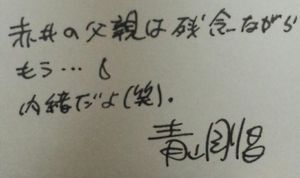 赤井の父親は残念ながら
もう…
内緒だよ(笑)。
青山剛昌